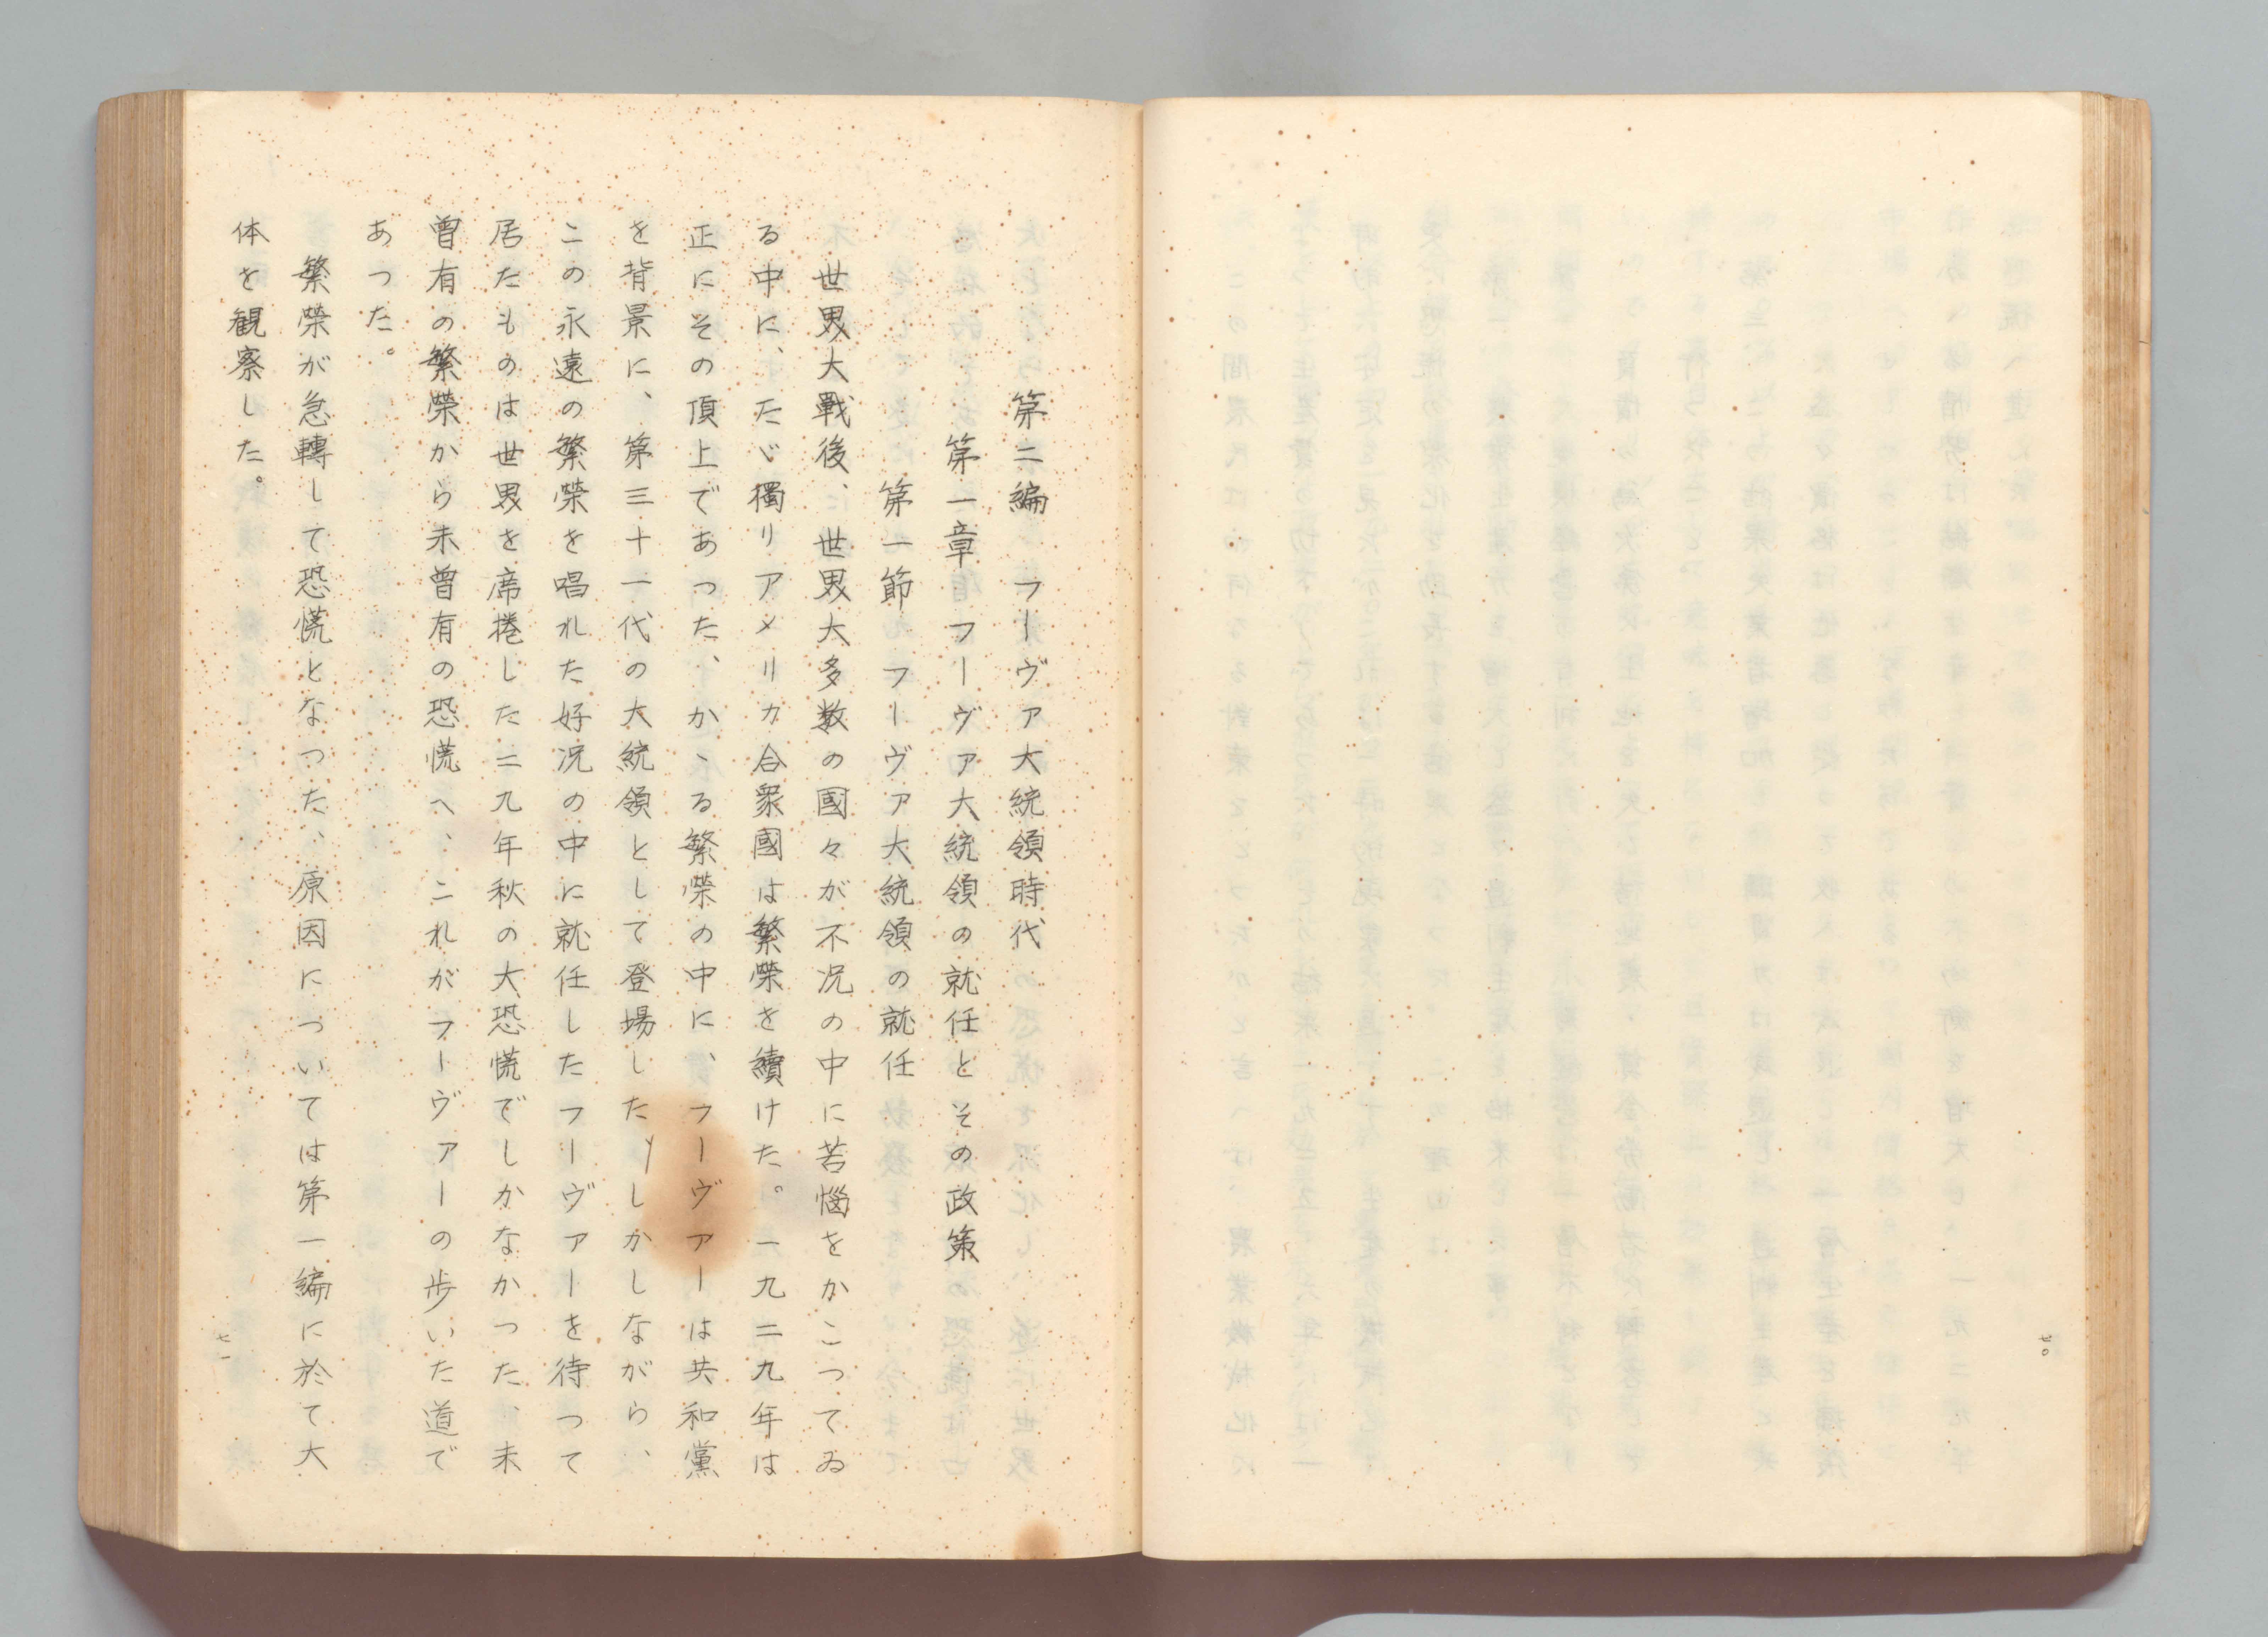 七〇
第二編　フーヴァ大統領時代
第一章　フーヴァ大統領の就任とその政策
第一節　フーヴァ大統領の就任
世界大戰後、世界大多数の國々が不況の中に苦惱をかこつてゐ
る中に、たゞ獨りアメリカ合衆國は繁榮を續けた。一九二九年は
正にその頂上であつた、かゝる繁榮の中に、フーヴァーは共和黨
を背景に、第三十一代の大統領として登場した〳〵しかしながら、
この永遠の繁榮を唱れた好況の中に就任したフーヴァーを待つて
居たものは世界を席捲した二九年秋の大恐慌でしかなかつた、未
曽有の繁榮から未曽有の恐慌へ、これがフーヴァーの歩いた道で
あつた。
繁榮が急轉して恐慌となつた、原因については第一編に於て大
体を観察した。
七一